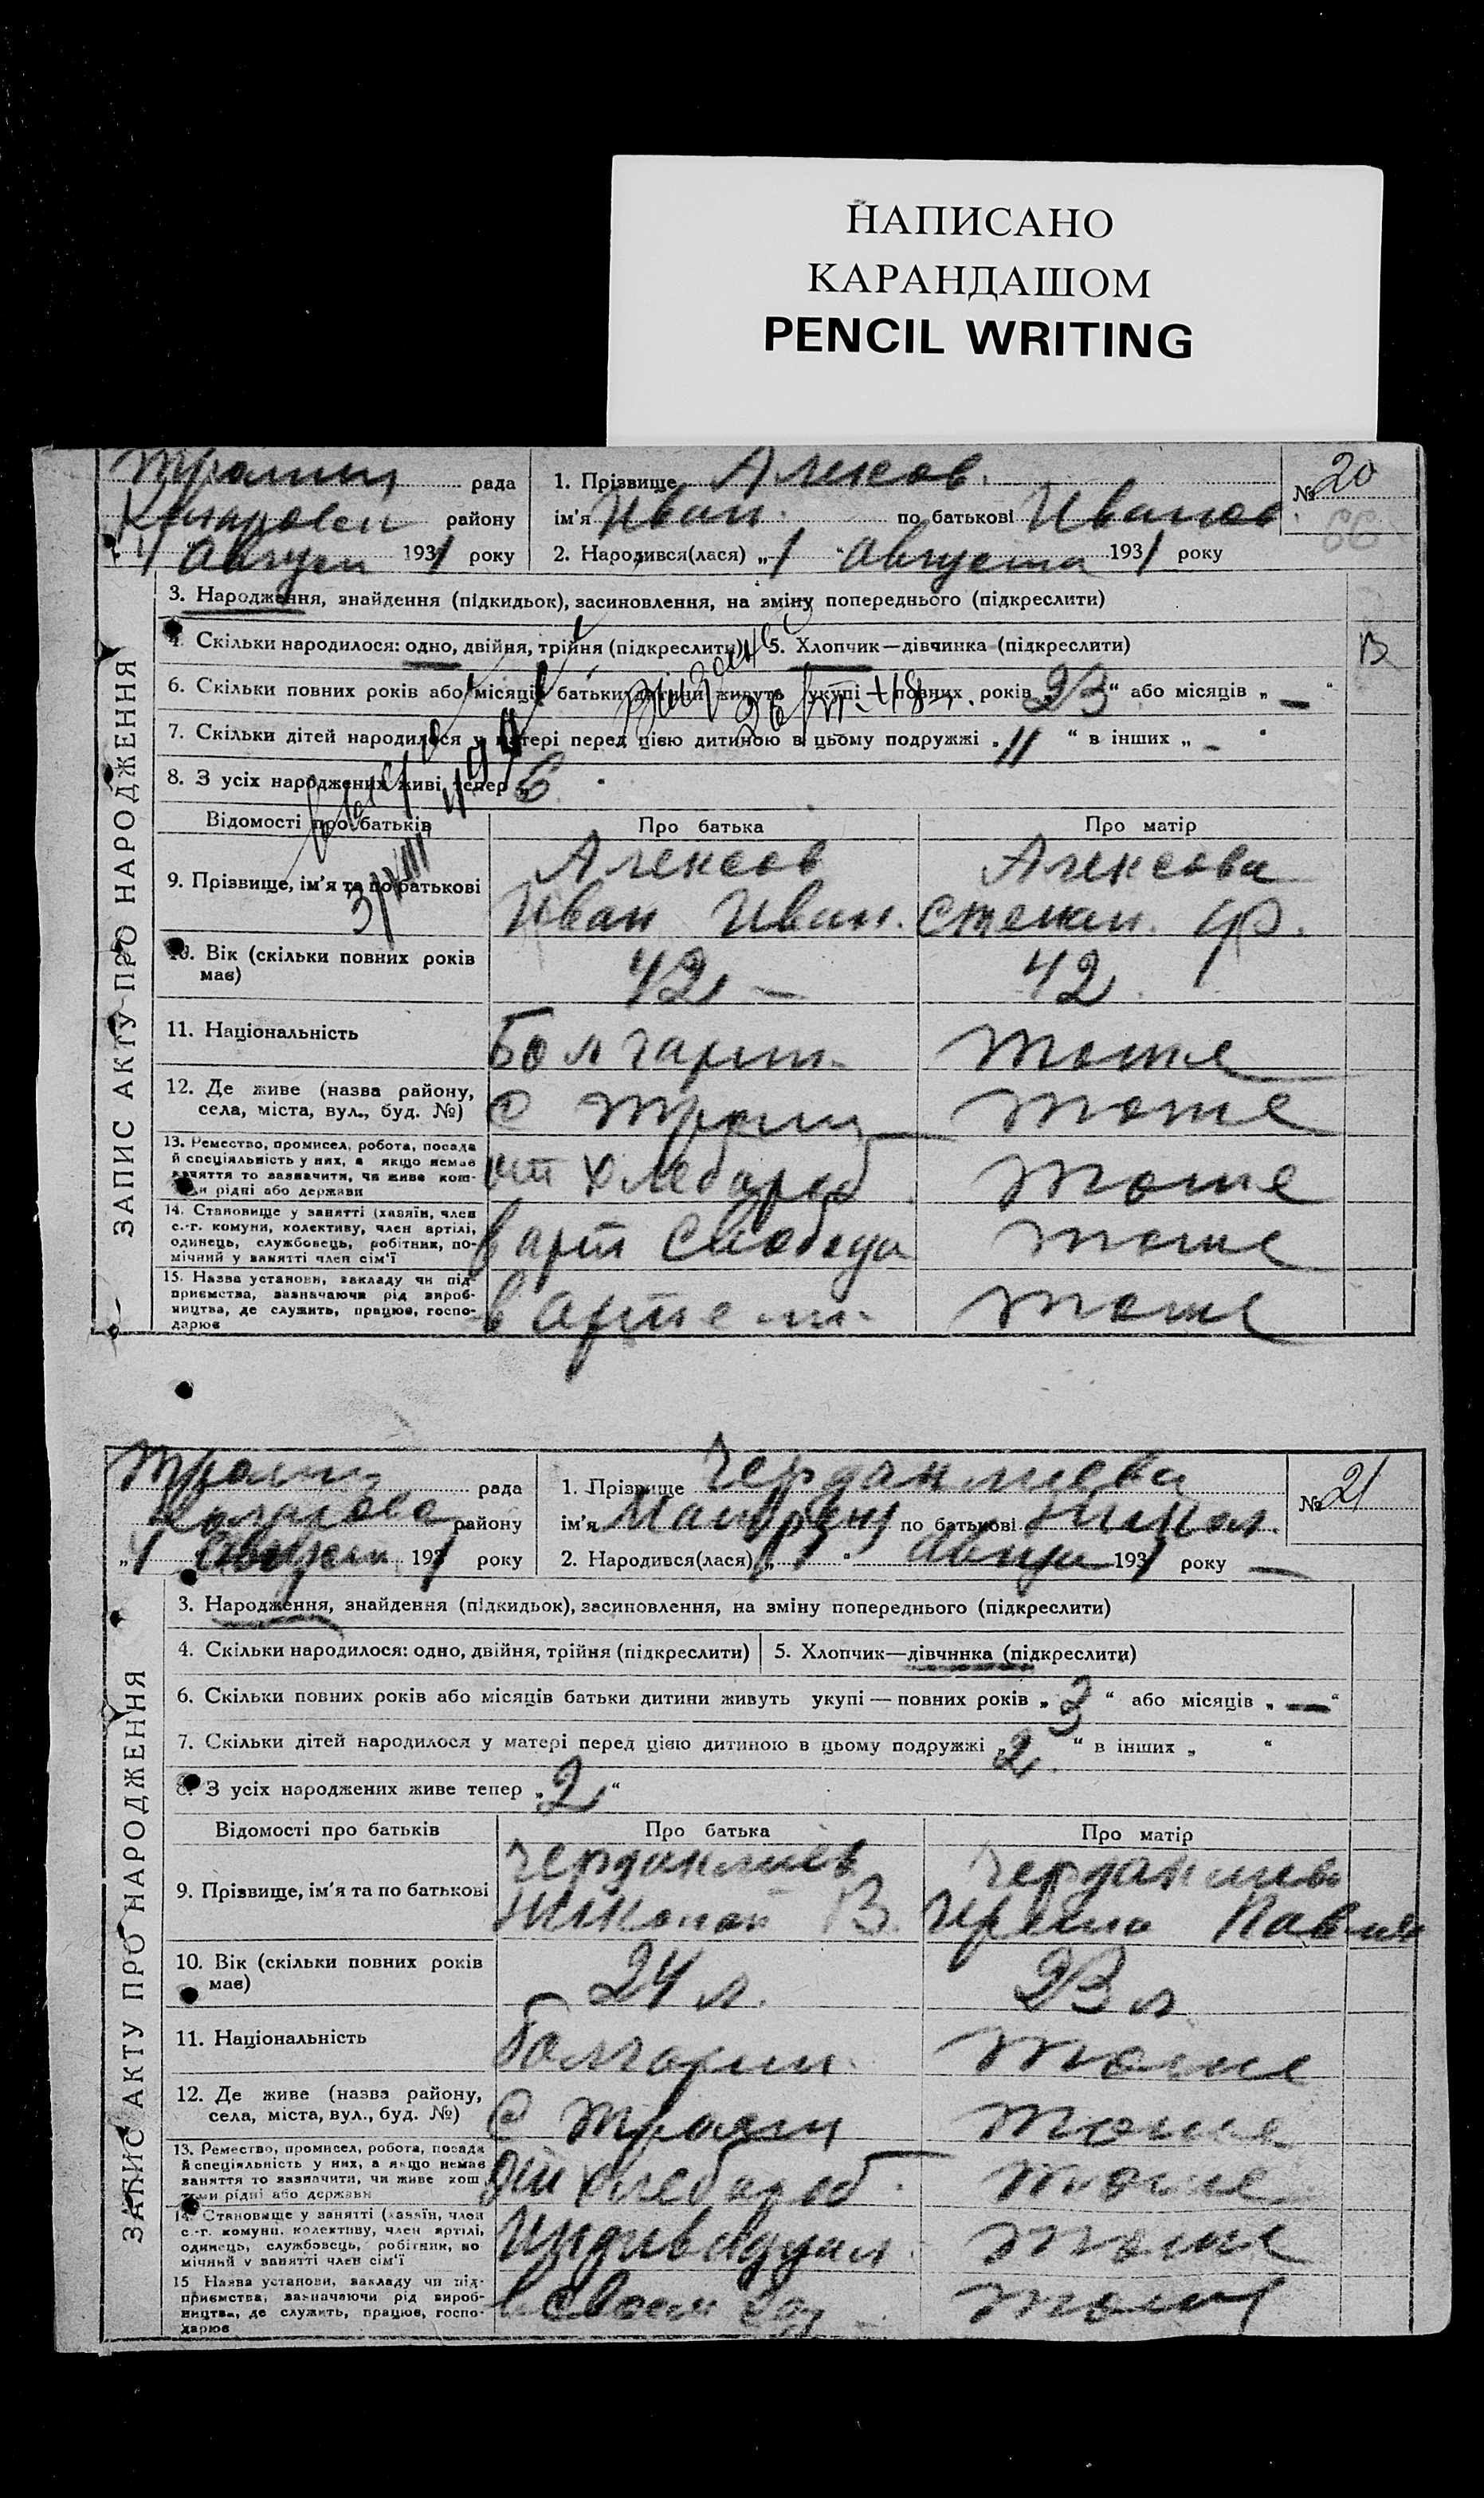 НАПИСАНО
КАРАНДАШОМ
PENCIL WRITING
Троян рада
1. Прізвище Алексов.
№ 20
району
ім'я Иван. по батькові Иванов.
1 Август 1931 року
2. Народився(лася) „1“ Августа 1931 року
ЗАПИС АКТУ ПРО НАРОДЖЕННЯ
3. Народження, знайдення (підкидьок), засиновлення, на зміну попереднього (підкреслити)
4. Скільки народилося: одно, двійня, трійня (підкреслити)
5. Хлопчик—дівчинка (підкреслити)
В
6. Скільки повних років або місяців батьки дитини живуть укупі — повних років „23“ або місяців „—“
7. Скільки дітей народилося у матері перед цією дитиною в цьому подружжі „11“ в інших „-“
8. З усіх народжених живі тепер „6
Відомості про батьків
Про батька
Про матір
9. Прізвище, ім'я та по батькові
Алексов
Иван Иван.
Алексова
Степан. Ф.
10. Вік (скільки повних років має)
42 —
42.
11. Національність
Болгарин
тоже
12. Де живе (назва району, села, міста, вул., буд. №)
с Троян
тоже
13. Ремество, промисел, робота, посада й спеціяльність у них, а якщо немає заняття то зазначити, чи живе коштами рідні або держави
хлебороб
тоже
14. Становище у занятті (хазяїн, член с.-г. комуни, колективу, член артілі, одинець, службовець, робітник, помічний у занятті член сім'ї
в арт Свобода
тоже
15. Назва установи, закладу чи підприємства, зазначаючи рід виробництва, де служить, працює, господарює
в артели
тоже
Троян рада
1. Прізвище Чердаклиева
№ 21
району
ім'я по батькові Никол.
1931 року
2. Народився(лася) „1“ 1931 року —
ЗАПИС АКТУ ПРО НАРОДЖЕННЯ
3. Народження, знайдення (підкидьок), засиновлення, на зміну попереднього (підкреслити)
4. Скільки народилося: одно, двійня, трійня (підкреслити)
5. Хлопчик—дівчинка (підкреслити)
6. Скільки повних років або місяців батьки дитини живуть укупі — повних років „3“ або місяців „—“
7. Скільки дітей народилося у матері перед цією дитиною в цьому подружжі „2“ в інших „ “
8. З усіх народжених живе тепер „2“
Відомості про батьків
Про батька
Про матір
9. Прізвище, ім'я та по батькові
Чердаклиев
Николай В.
Чердаклиева
Ирина
10. Вік (скільки повних років має)
24 л.
23 л
11. Національність
Болгарин
тоже
12. Де живе (назва району, села, міста, вул., буд. №)
с Троян
тоже
13. Ремество, промисел, робота, посада й спеціяльність у них, а якщо немає заняття то зазначити, чи живе коштами рідні або держави
хлебороб
тоже
14. Становище у занятті (хазяїн, член с.-г. комуни, колективу, член артілі, одинець, службовець, робітник, помічний у занятті член сім'ї
Индивидуал
тоже
15 Назва установи, закладу чи підприємства, зазначаючи рід виробництва, де служить, працює, господарює
в своем хоз
тоже